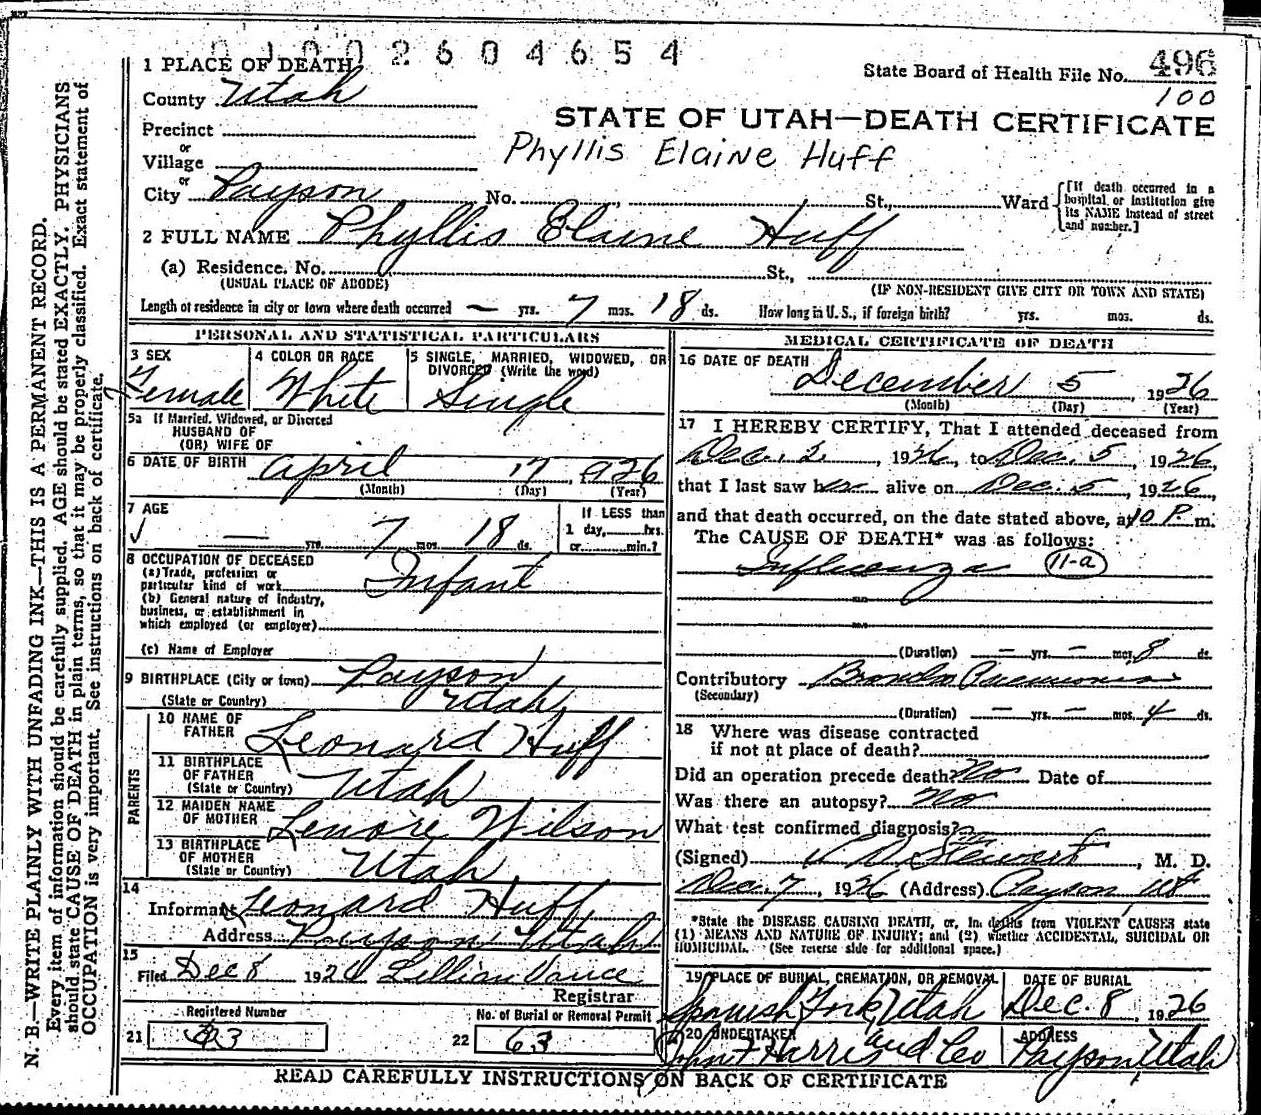 0100 2604654
1 PLACE OF DEATH
State Board of Health File No. 496
100
County Utah
STATE OF UTAH—DEATH CERTIFICATE
Precinct
or
Phyllis Elaine Huff
Village
or
City Payson No. St., Ward [If death occurred in a hospital or institution give its NAME instead of street and number.]
2 FULL NAME Phyllis Elaine Huff
(a) Residence. No. St.,
(USUAL PLACE OF ABODE) (IF NON-RESIDENT GIVE CITY OR TOWN AND STATE)
Length of residence in city or town where death occurred — yrs. 7 mos. 18 ds. How long in U. S., if foreign birth? yrs. mos. ds.
PERSONAL AND STATISTICAL PARTICULARS
3 SEX
Female
4 COLOR OR RACE
White
5 SINGLE, MARRIED, WIDOWED, OR
DIVORCED (Write the word)
Single
5a If Married, Widowed, or Divorced
HUSBAND OF
(OR) WIFE OF
6 DATE OF BIRTH April 17, 1926
(Month) (Day) (Year)
7 AGE
— yrs. 7 mos. 18 ds.
If LESS than
1 day, hrs.
or min.?
8 OCCUPATION OF DECEASED
(a) Trade, profession or
particular kind of work Infant
(b) General nature of industry,
business, or establishment in
which employed (or employer)
(c) Name of Employer
9 BIRTHPLACE (City or town) Payson
(State or Country) Utah
PARENTS
10 NAME OF
FATHER Leonard Huff
11 BIRTHPLACE
OF FATHER
(State or Country) Utah
12 MAIDEN NAME
OF MOTHER Lenore Wilson
13 BIRTHPLACE
OF MOTHER
(State or Country) Utah
14
Informant Leonard Huff
Address Payson Utah
15
Filed Dec 8 1926 Lillian Vance
Registrar
Registered Number
21
No. of Burial or Removal Permit
22 63
MEDICAL CERTIFICATE OF DEATH
16 DATE OF DEATH
December 5, 1926
(Month) (Day) (Year)
17 I HEREBY CERTIFY, That I attended deceased from
Dec. 2, 1926, to Dec. 5, 1926,
that I last saw her alive on Dec. 5, 1926,
and that death occurred, on the date stated above, at 10 P. m.
The CAUSE OF DEATH* was as follows:
Influenza 11-a
(Duration) — yrs. — mos. 8 ds.
Contributory Broncho Pneumonia
(Secondary)
(Duration) — yrs. — mos. 4 ds.
18 Where was disease contracted
if not at place of death?
Did an operation precede death? No Date of
Was there an autopsy? No
What test confirmed diagnosis?
(Signed) Stewart, M. D.
Dec. 7, 1926 (Address) Payson Ut
*State the DISEASE CAUSING DEATH, or, in deaths from VIOLENT CAUSES state
(1) MEANS AND NATURE OF INJURY; and (2) whether ACCIDENTAL, SUICIDAL OR
HOMICIDAL. (See reverse side for additional space.)
19 PLACE OF BURIAL, CREMATION, OR REMOVAL
Spanish Fork Utah
DATE OF BURIAL
Dec. 8, 1926
20 UNDERTAKER
John F Harris and Co
ADDRESS
Payson Utah
READ CAREFULLY INSTRUCTIONS ON BACK OF CERTIFICATE
N. B.—WRITE PLAINLY WITH UNFADING INK—THIS IS A PERMANENT RECORD.
Every item of information should be carefully supplied. AGE should be stated EXACTLY. PHYSICIANS
should state CAUSE OF DEATH in plain terms, so that it may be properly classified. Exact statement of
OCCUPATION is very important. See instructions on back of certificate.